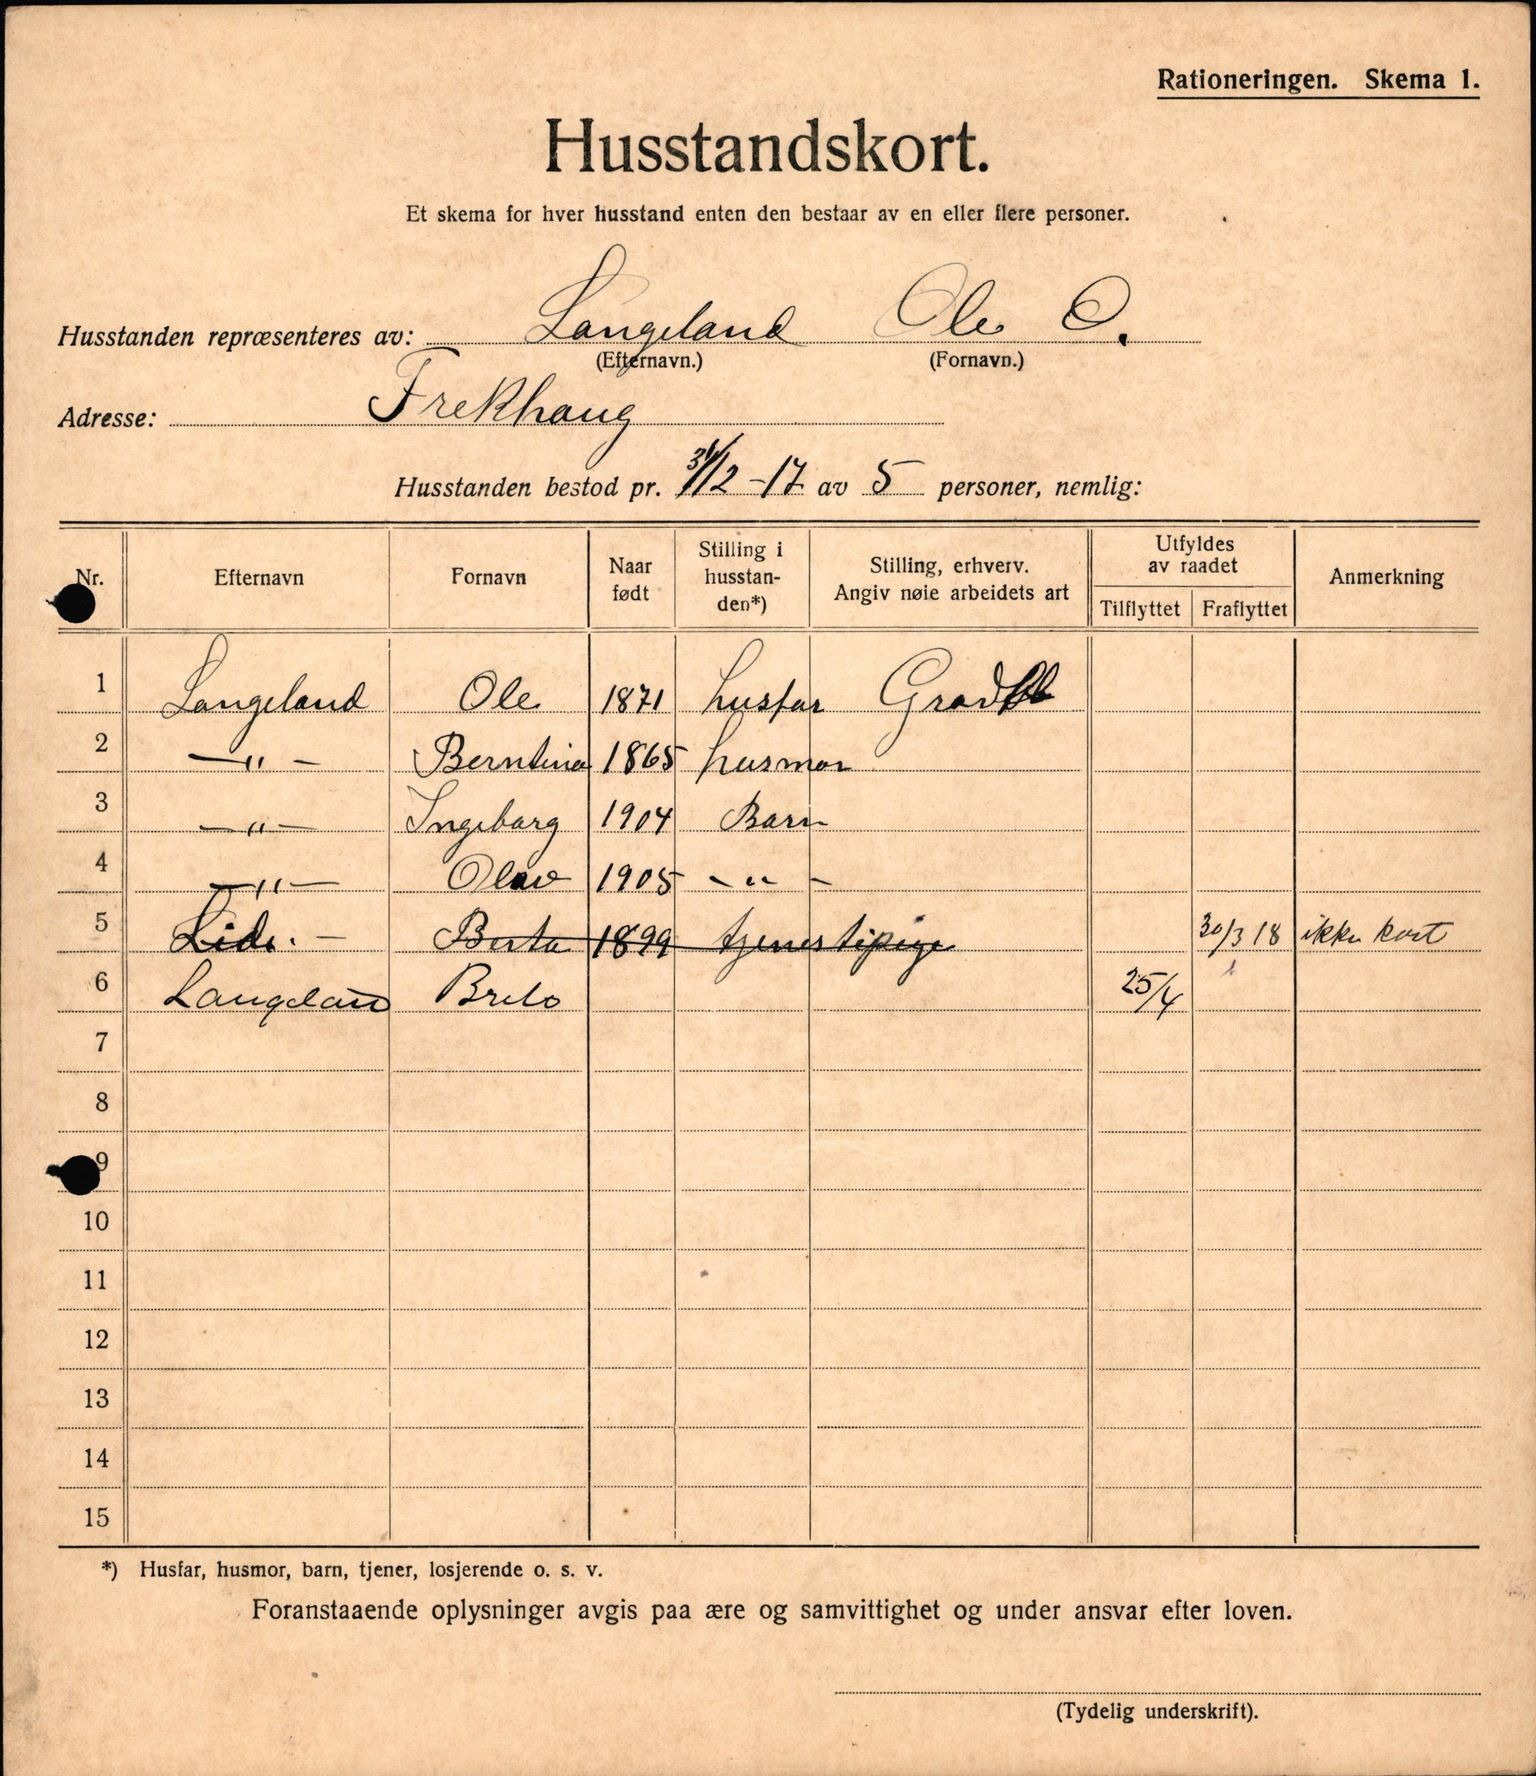 Rationeringen. Skema 1.
Husstandskort.
Et skema for hver husstand enten den bestaar av en eller flere personer.
Husstanden repræsenteres av: Langeland Ole O.
(Efternavn.) (Fornavn.)
Adresse: Frekhaug
Husstanden bestod pr. 31/12-17 av 5 personer, nemlig:
Nr. Efternavn Fornavn Naar født Stilling i husstan-den*) Stilling, erhverv. Angiv nøie arbeidets art Utfyldes av raadet Tilflyttet Fraflyttet Anmerkning
1 Langeland Ole 1871 husfar
2 —"— Berntina 1865 husmor
3 —"— Ingeborg 1904 Barn
4 —"— Olav 1905 -"-
5 Lide. — Berta 1899 tjenestepige 30/3 18 ikke kort
6 Langeland Brita 25/4
7
8
9
10
11
12
13
14
15
*) Husfar, husmor, barn, tjener, losjerende o. s. v.
Foranstaaende oplysninger avgis paa ære og samvittighet og under ansvar efter loven.
(Tydelig underskrift).